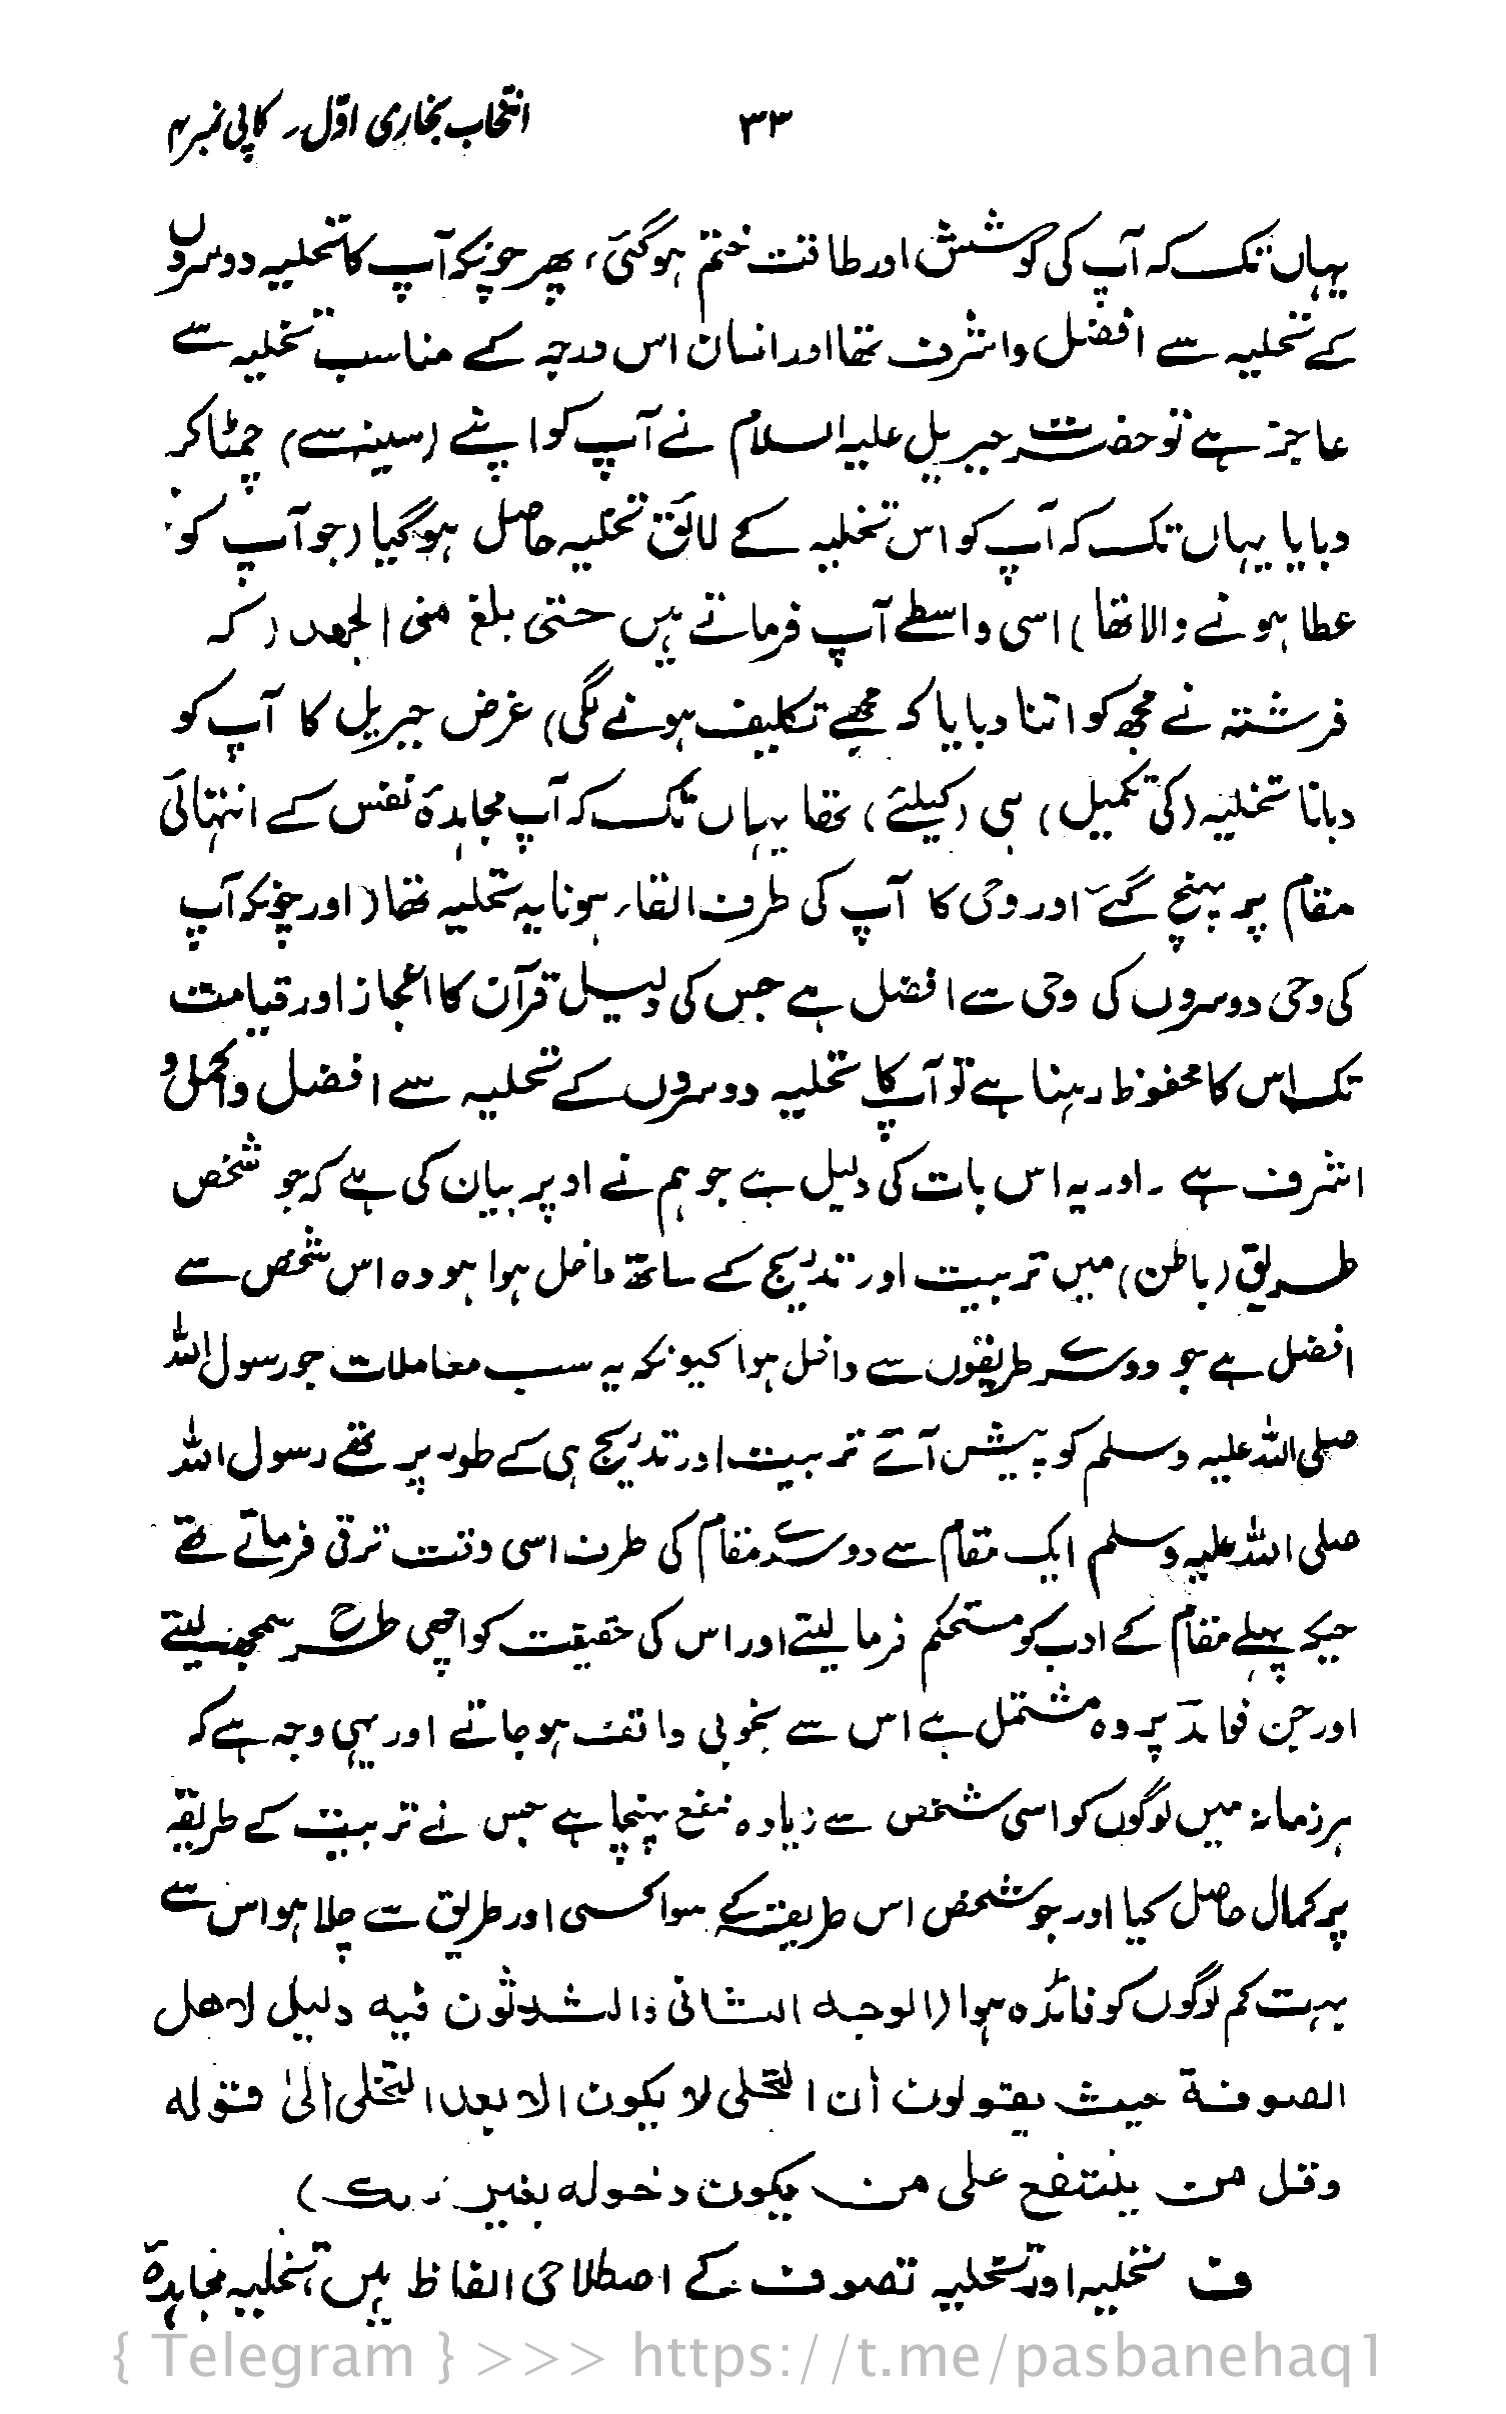 ۳۳ انتخاب بخاری اوّل۔ کاپی نمبر۳
یہاں تک کہ آپ کی کوشش اور طاقت ختم ہوگئی، پھر چونکہ آپ کا تحلیہ دوسروں
کے تحلیہ سے افضل واشرف تھا اور انسان اس درجہ کے مناسب تخلیہ سے
عاجز ہے تو حضرت جبریل علیہ السلام نے آپ کو اپنے (سینہ سے) چمٹا کر
دبایا یہاں تک کہ آپ کو اس تخلیہ کے لائق تحلیہ حاصل ہوگیا (جو آپ کو
عطا ہونے والا تھا) اسی واسطے آپ فرماتے ہیں حتیٰ بلغ منی الجھد (کہ
فرشتہ نے مجھ کو اتنا دبایا کہ مجھے تکلیف ہونے لگی) غرض جبریل کا آپ کو
دبانا تخلیہ (کی تکمیل) ہی (کیلئے) تھا یہاں تک کہ آپ مجاہدۂ نفس کے انتہائی
مقام پر پہنچ گئے اور وحی کا آپ کی طرف القاء ہونا یہ تحلیہ تھا (اور چونکہ آپ
کی وحی دوسروں کی وحی سے افضل ہے جس کی دلیل قرآن کا اعجاز اور قیامت
تک اس کا محفوظ رہنا ہے تو آپ کا تحلیہ دوسروں کے تحلیہ سے افضل واکمل و
اشرف ہے ۔ اور یہ اس بات کی دلیل ہے جو ہم نے اوپر بیان کی ہے کہ جو شخص
طریق (باطن) میں تربیت اور تدریج کے ساتھ داخل ہوا ہو وہ اس شخص سے
افضل ہے جو دوسرے طریقوں سے داخل ہوا کیونکہ یہ سب معاملات جو رسول اللہ
صلی اللہ علیہ وسلم کو پیش آئے تربیت اور تدریج ہی کے طور پر تھے رسول اللہ
صلی اللہ علیہ وسلم ایک مقام سے دوسرے مقام کی طرف اسی وقت ترقی فرماتے تھے
جبکہ پہلے مقام کے ادب کو مستحکم فرما لیتے اور اس کی حقیقت کو اچھی طرح سمجھ لیتے
اور جن فوائد پر وہ مشتمل ہے اس سے بخوبی واقف ہوجاتے اور یہی وجہ ہے کہ
ہر زمانہ میں لوگوں کو اسی شخص سے زیادہ نفع پہنچا ہے جس نے تربیت کے طریقہ
پر کمال حاصل کیا اور جو شخص اس طریقہ کے سوا کسی اور طریق سے چلا ہو اس سے
بہت کم لوگوں کو فائدہ ہوا (الوجہ الثانی والثلاثون فیہ دلیل لاھل
الصوفۃ حیث یقولون أن التحلی لا یکون الا بعد التخلی إلیٰ قولہ
وقل من ینتفع علی من یکون دخولہ بغیر ذٰلک)
ف تخلیہ اور تحلیہ تصوف کے اصطلاحی الفاظ ہیں، تخلیہ مجاہدہ
{ Telegram } >>> https://t.me/pasbanehaq1